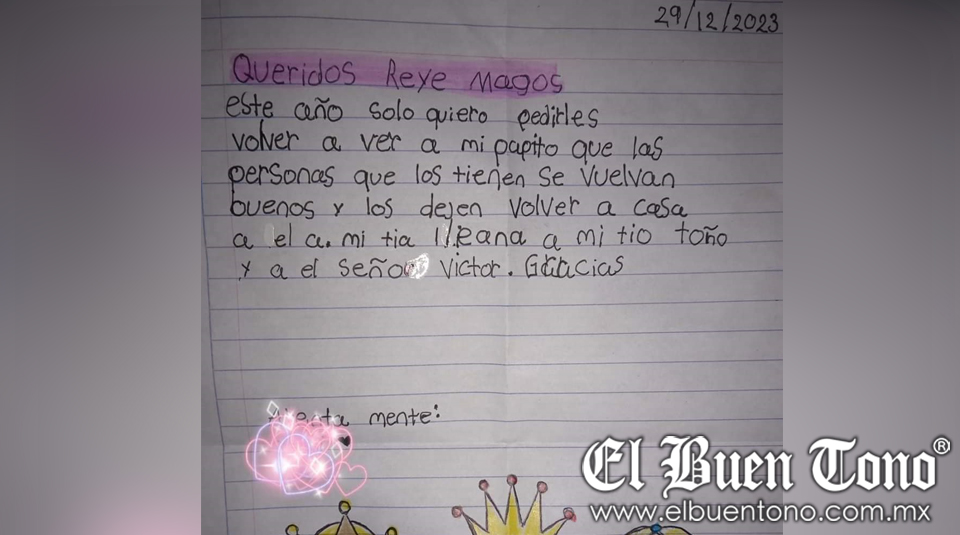 29/12/2023
Queridos Reye Magos
este año solo quiero pedirles
volver a ver a mi papito que las
personas que los tienen se vuelvan
buenos y los dejen volver a casa
a el a. mi tia Ileana a mi tio toño
y a el señor victor. Gracias
mente:
El Buen Tono®
www.elbuentono.com.mx